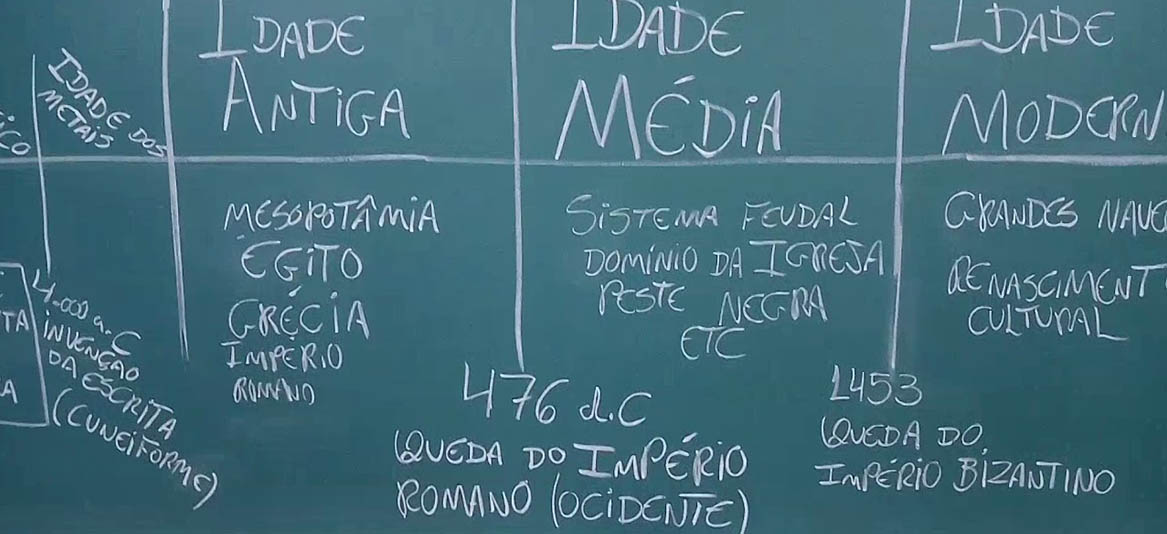 IDADE DOS
METAIS
4.000 a.C
INVENÇÃO
DA ESCRITA
(CUNEIFORME)
IDADE
ANTIGA
MESOPOTÂMIA
EGITO
GRÉCIA
IMPÉRIO
ROMANO
476 d.C
QUEDA DO IMPÉRIO
ROMANO (OCIDENTE)
IDADE
MÉDIA
SISTEMA FEUDAL
DOMÍNIO DA IGREJA
PESTE NEGRA
ETC
1453
QUEDA DO
IMPÉRIO BIZANTINO
IDADE
MODERN
GRANDES NAVE
RENASCIMENT
CULTURAL